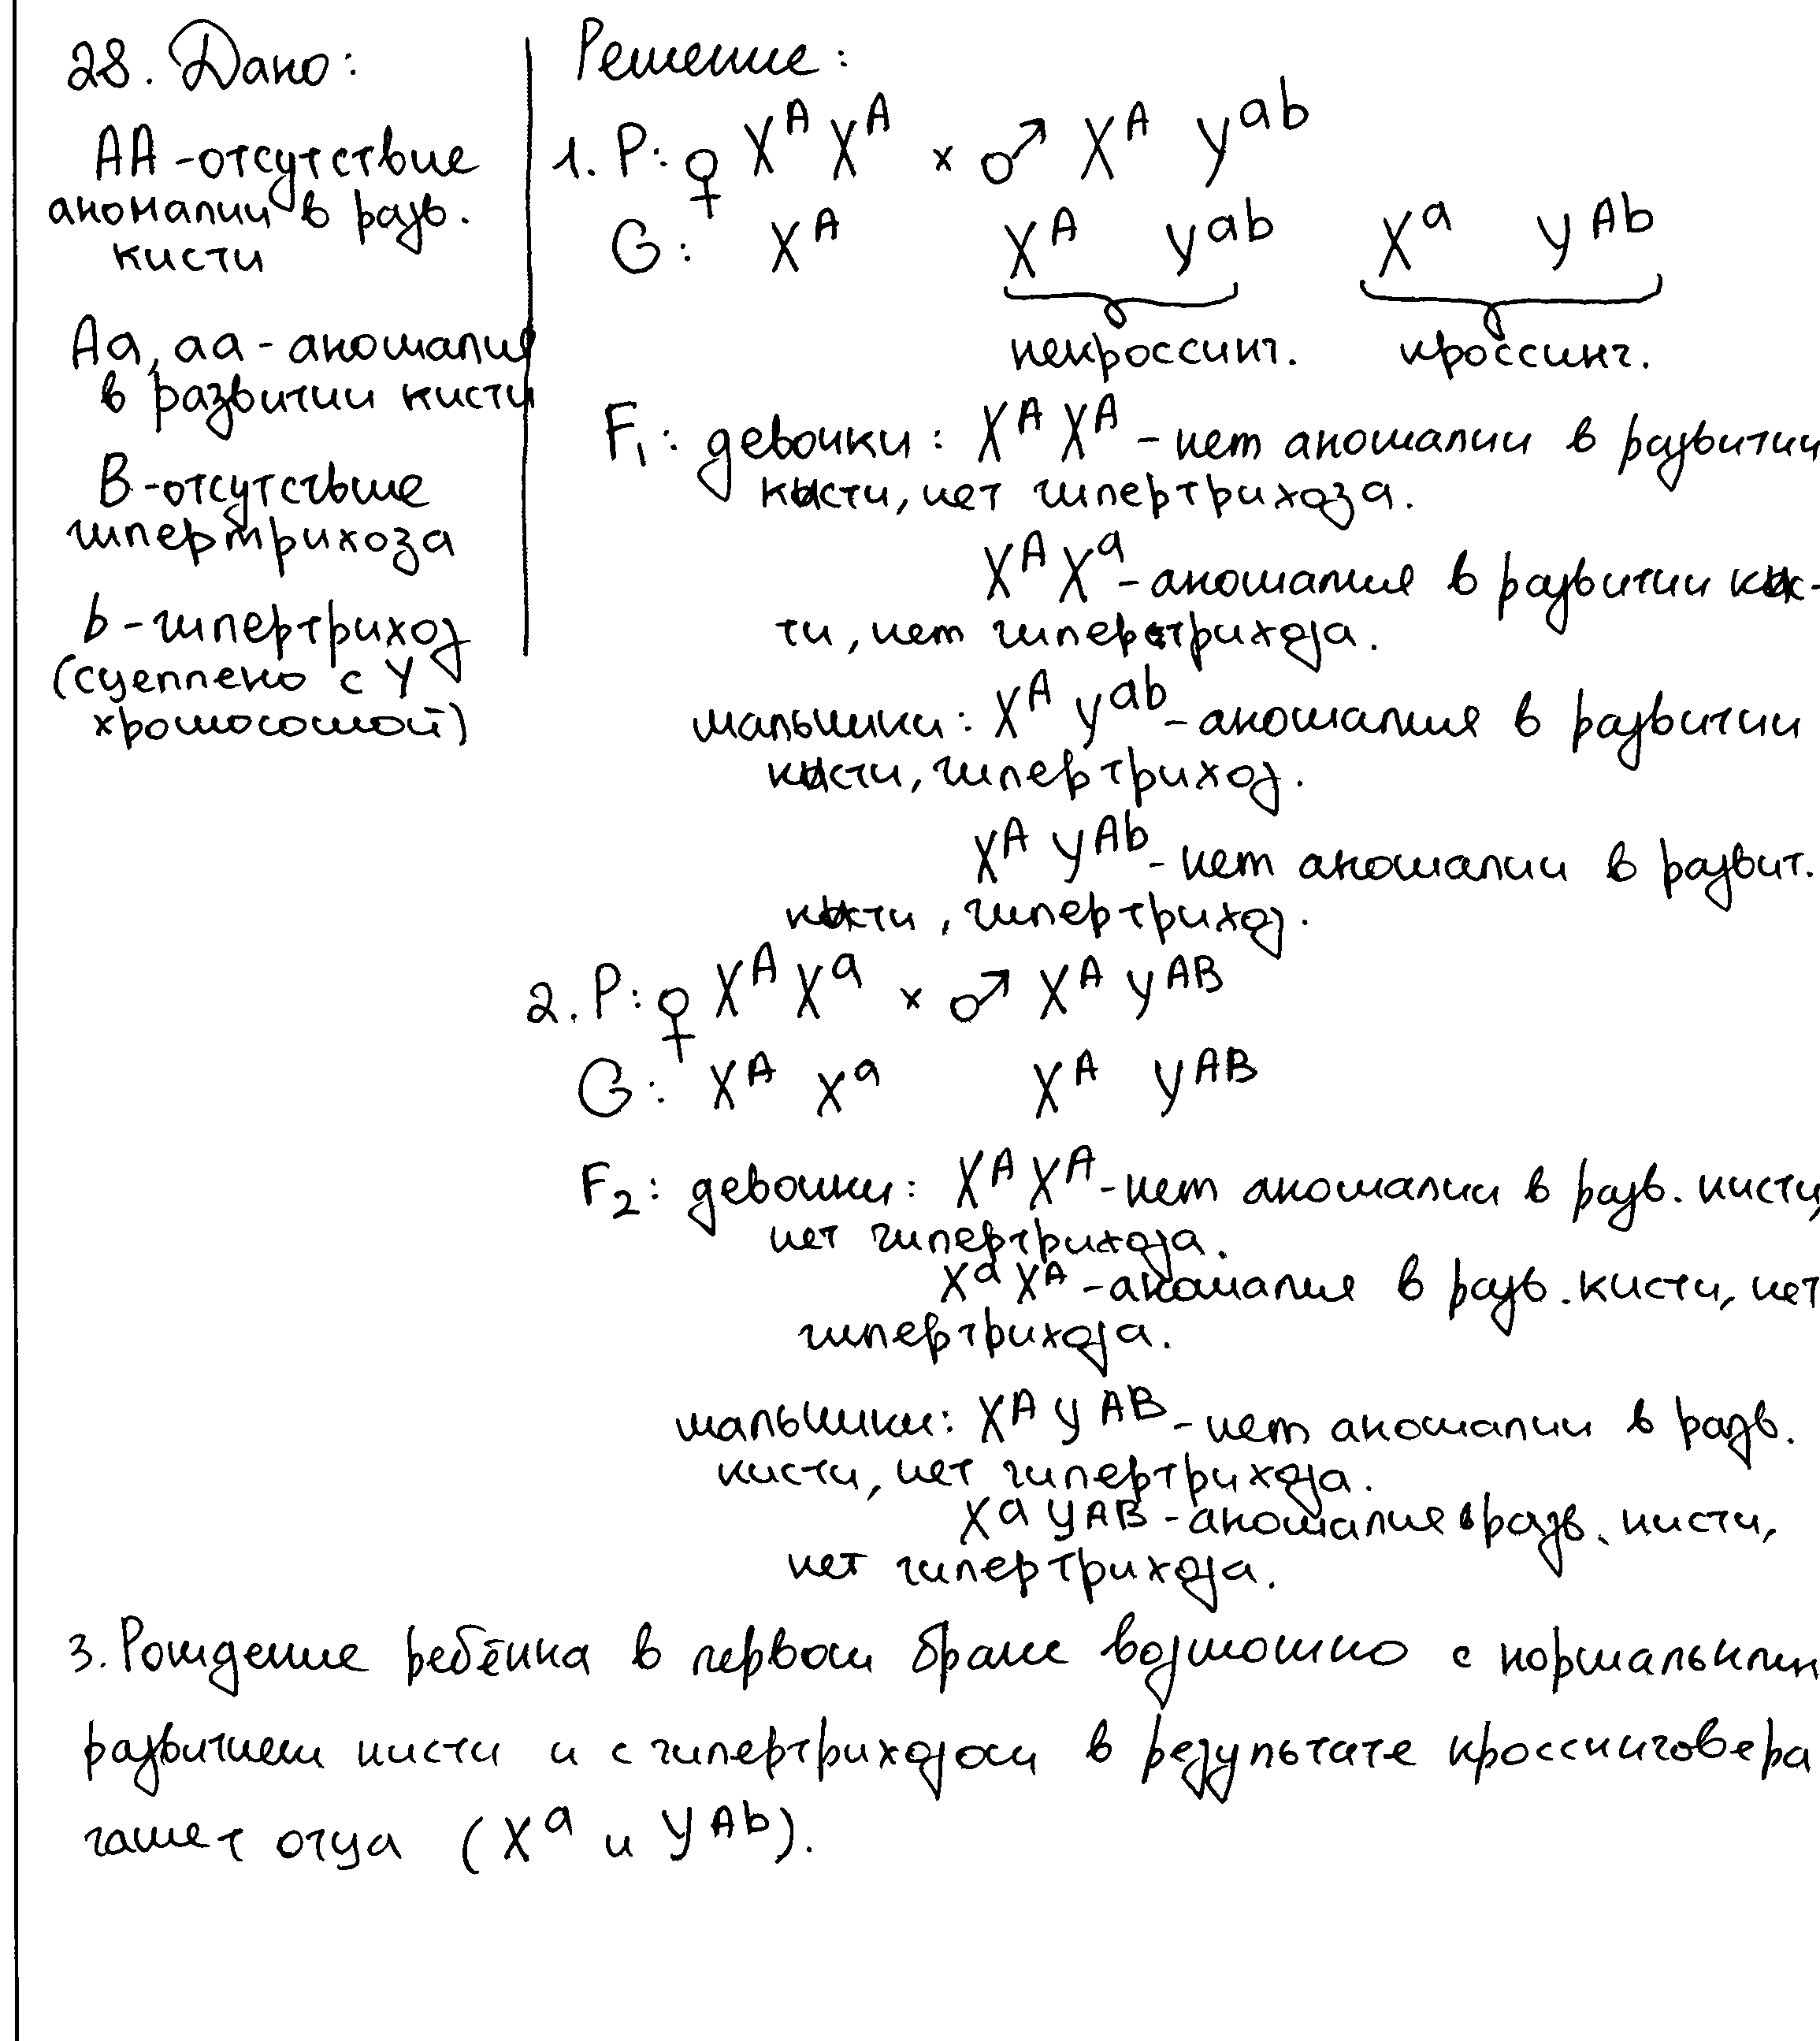 28. Дано:
АА - отсутствие
аномалии в разв.
кисти
Аа, аа - аномалия
в развитии кисти
В - отсутствие
гипертрихоза
b - гипертрихоз
(сцеплено с Y
хромосомой)
Решение:
1. P: ♀ X^A X^A × ♂ X^A Y^ab
G: X^A X^A Y^ab X^a Y^Ab
некроссинг. кроссинг.
F₁: девочки: X^A X^A - нет аномалии в развитии
кисти, нет гипертрихоза.
X^A X^a - аномалия в развитии кис-
ти, нет гипертрихоза.
мальчики: X^A Y^ab - аномалия в развитии
кисти, гипертрихоз.
X^A Y^Ab - нет аномалии в развит.
кисти, гипертрихоз.
2. P: ♀ X^A X^a × ♂ X^A Y^AB
G: X^A X^a X^A Y^AB
F₂: девочки: X^A X^A - нет аномалии в разв. кисти,
нет гипертрихоза.
X^a X^A - аномалия в разв. кисти, нет
гипертрихоза.
мальчики: X^A Y^AB - нет аномалии в разв.
кисти, нет гипертрихоза.
X^a Y^AB - аномалия в разв. кисти,
нет гипертрихоза.
3. Рождение ребёнка в первом браке возможно с нормальным
развитием кисти и с гипертрихозом в результате кроссинговера
гамет отца (X^a и Y^Ab).